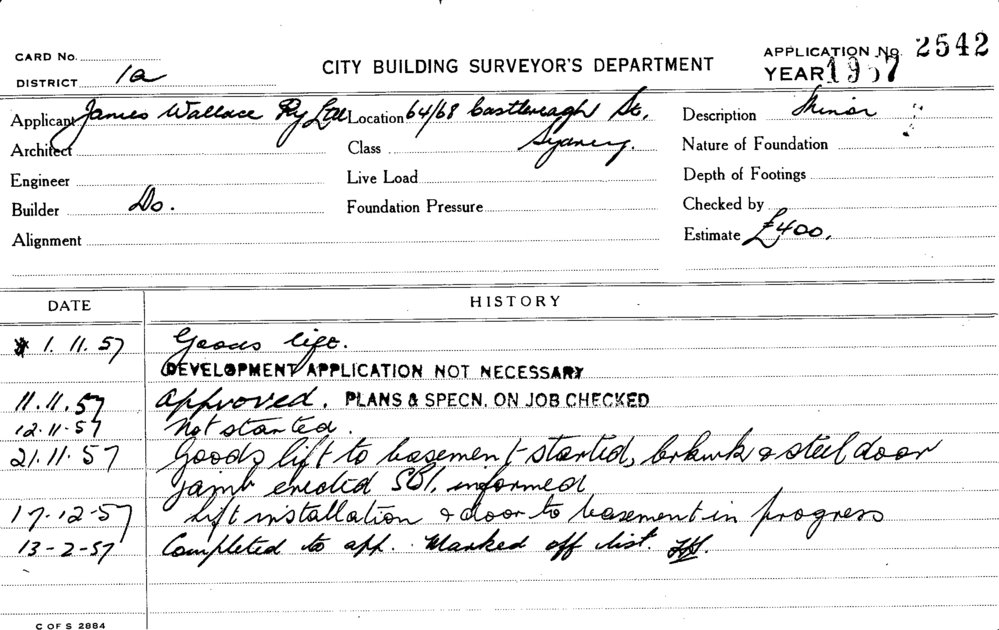 CARD No.
DISTRICT 1a
CITY BUILDING SURVEYOR'S DEPARTMENT
APPLICATION No. 2542
YEAR 1957
Applicant James Wallace Pty Ltd Location 64/68 Castlereagh St, Description Minor
Architect Class Sydney. Nature of Foundation
Engineer Live Load Depth of Footings
Builder Do. Foundation Pressure Checked by
Alignment Estimate £400.
DATE HISTORY
1.11.57 Goods lift.
DEVELOPMENT APPLICATION NOT NECESSARY
11.11.57 Approved. PLANS & SPECN. ON JOB CHECKED
12.11.57 Not started.
21.11.57 Goods lift to basement started, brkwk & steel door
jamb erected SBI. informed
17-12-57 Lift installation & door to basement in progress
13-2-57 Completed to app. Marked off list.
C OF S 2884